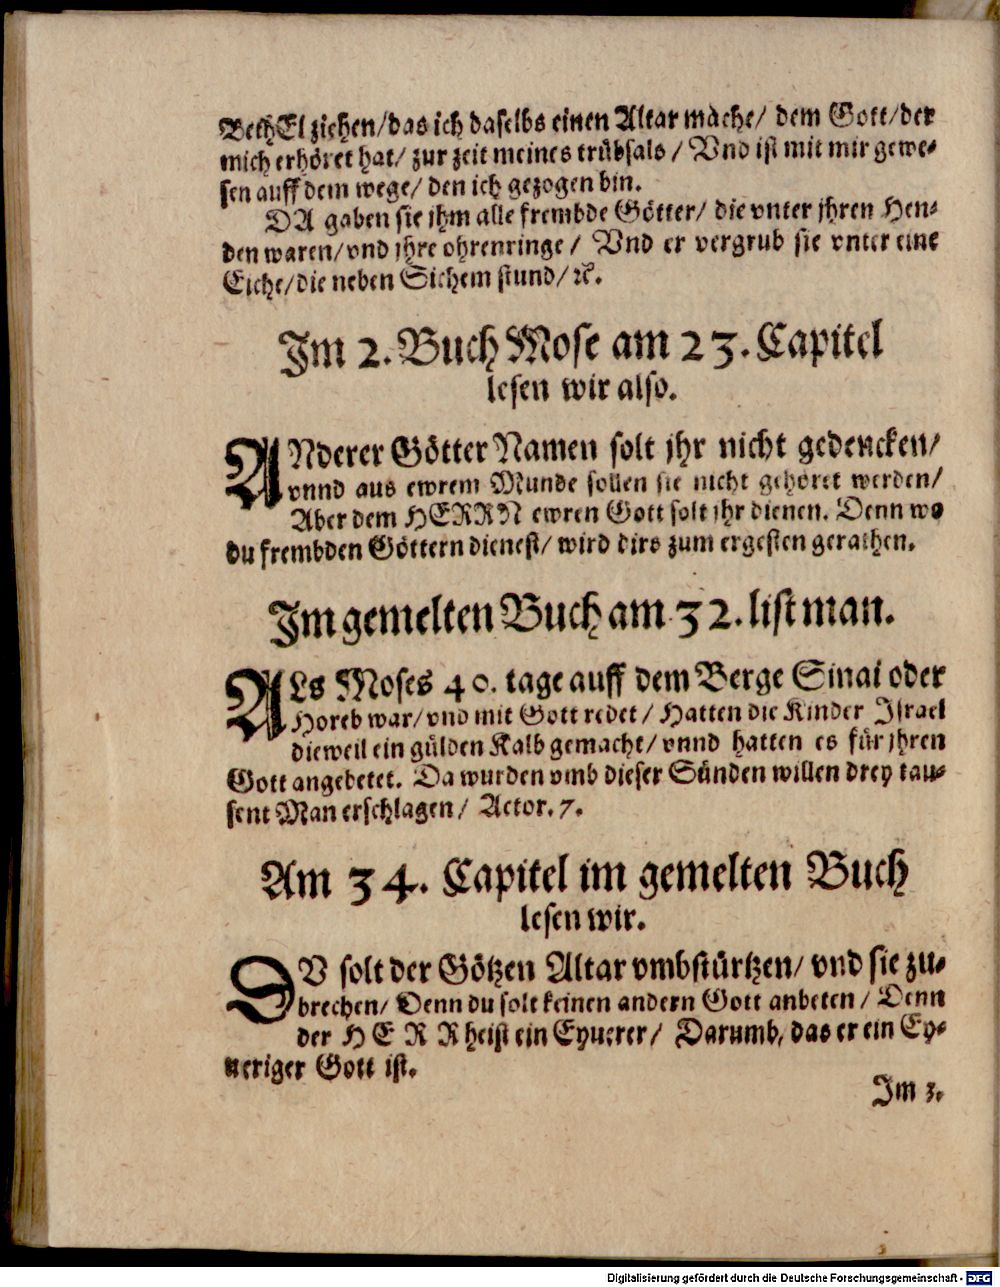 BethEl ziehen/das ich daselbs einen Altar mache/ dem Gott/der
mich erhöret hat/ zur zeit meines trübsals / Vnd ist mit mir gewe-
sen auff dem wege/ den ich gezogen bin.
DA gaben sie jhm alle frembde Götter/ die vnter jhren Hen-
den waren/vnd jhre ohrenringe / Vnd er vergrub sie vnter eine
Eiche/die neben Sichem stund/ꝛc.
Im 2. Buch Mose am 23. Capitel
lesen wir also.
ANderer Götter Namen solt jhr nicht gedencken/
vnnd aus ewrem Munde sollen sie nicht gehöret werden/
Aber dem HERRN ewren Gott solt jhr dienen. Denn wo
du frembden Göttern dienest/ wird dirs zum ergesten gerathen.
Im gemelten Buch am 32. list man.
ALs Moses 40. tage auff dem Berge Sinai oder
Horeb war/vnd mit Gott redet / Hatten die Kinder Israel
dieweil ein gülden Kalb gemacht/ vnnd hatten es für jhren
Gott angebetet. Da wurden vmb dieser Sünden willen drey tau-
sent Man erschlagen/ Actor. 7.
Am 34. Capitel im gemelten Buch
lesen wir.
DV solt der Götzen Altar vmbstürtzen/ vnd sie zu-
brechen/ Denn du solt keinen andern Gott anbeten / Denn
der HERR heist ein Eyuerer/ Darumb, das er ein Ey-
ueriger Gott ist.
Im 3.
Digitalisierung gefördert durch die Deutsche Forschungsgemeinschaft - DFG